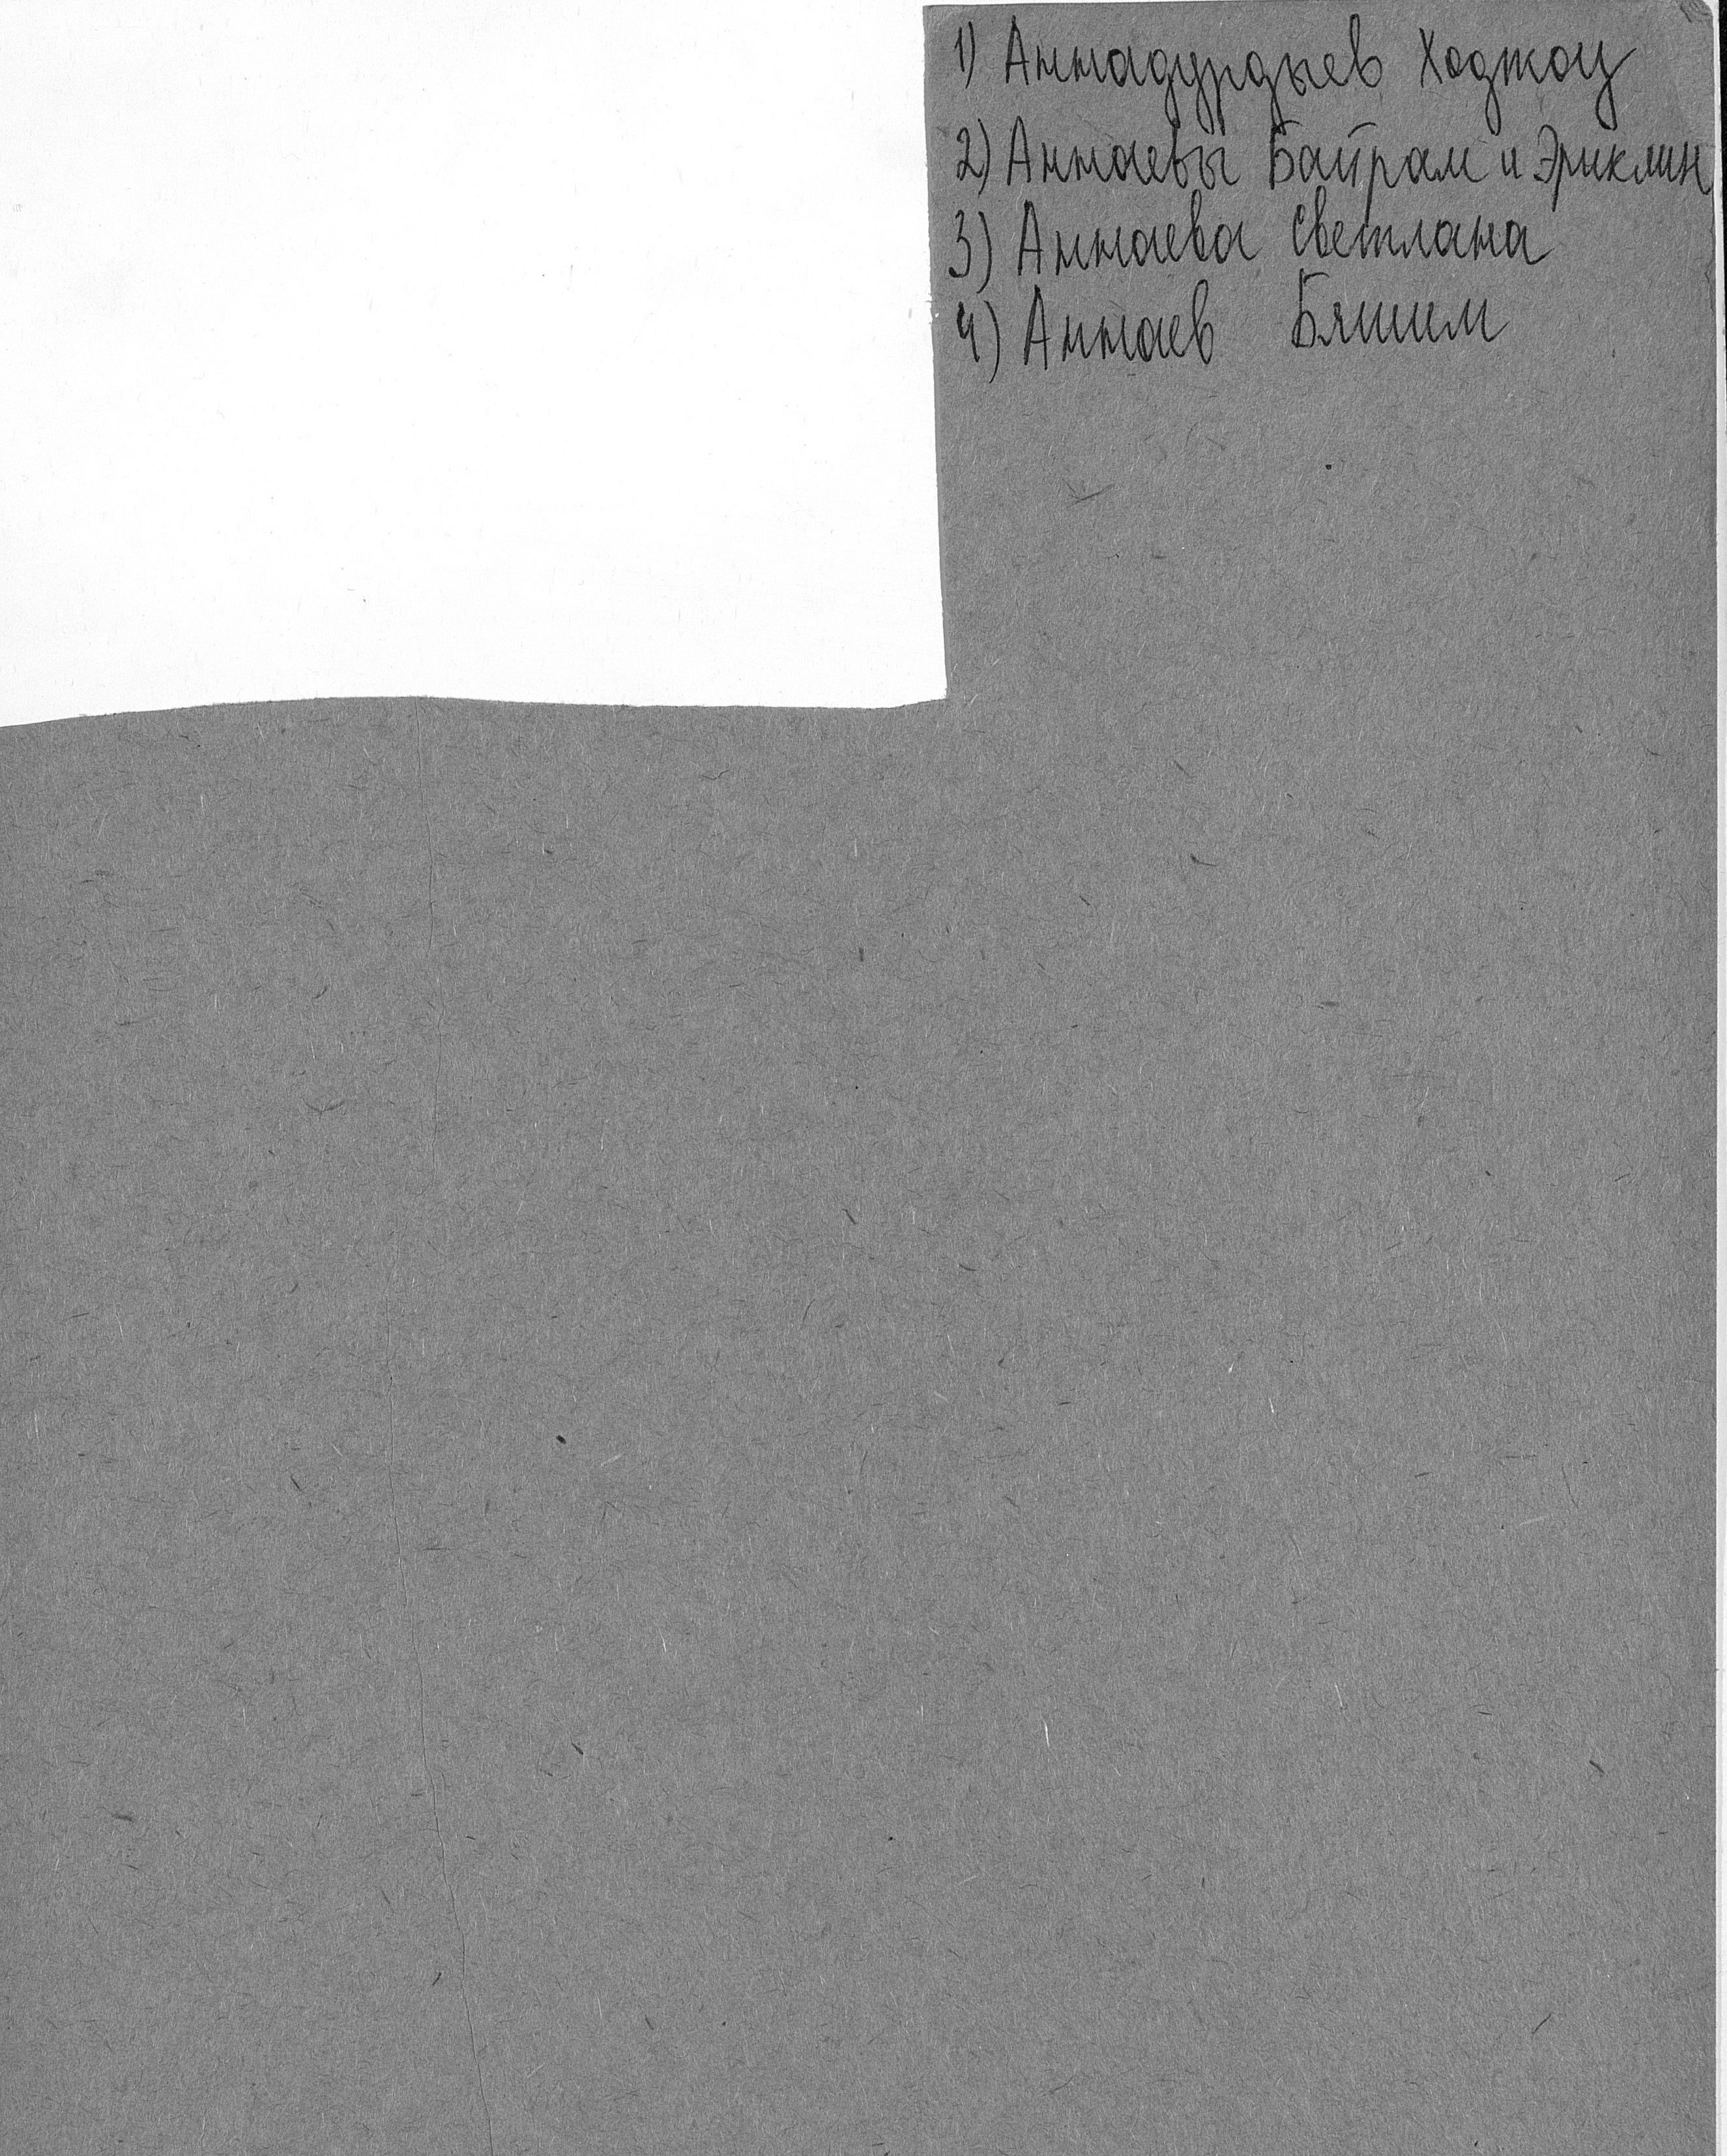 1) Аннадурдыев Ходжоу
2) Аннаевы Байрам и Эриклин
3) Аннаева Светлана
4) Аннаев Бяшим